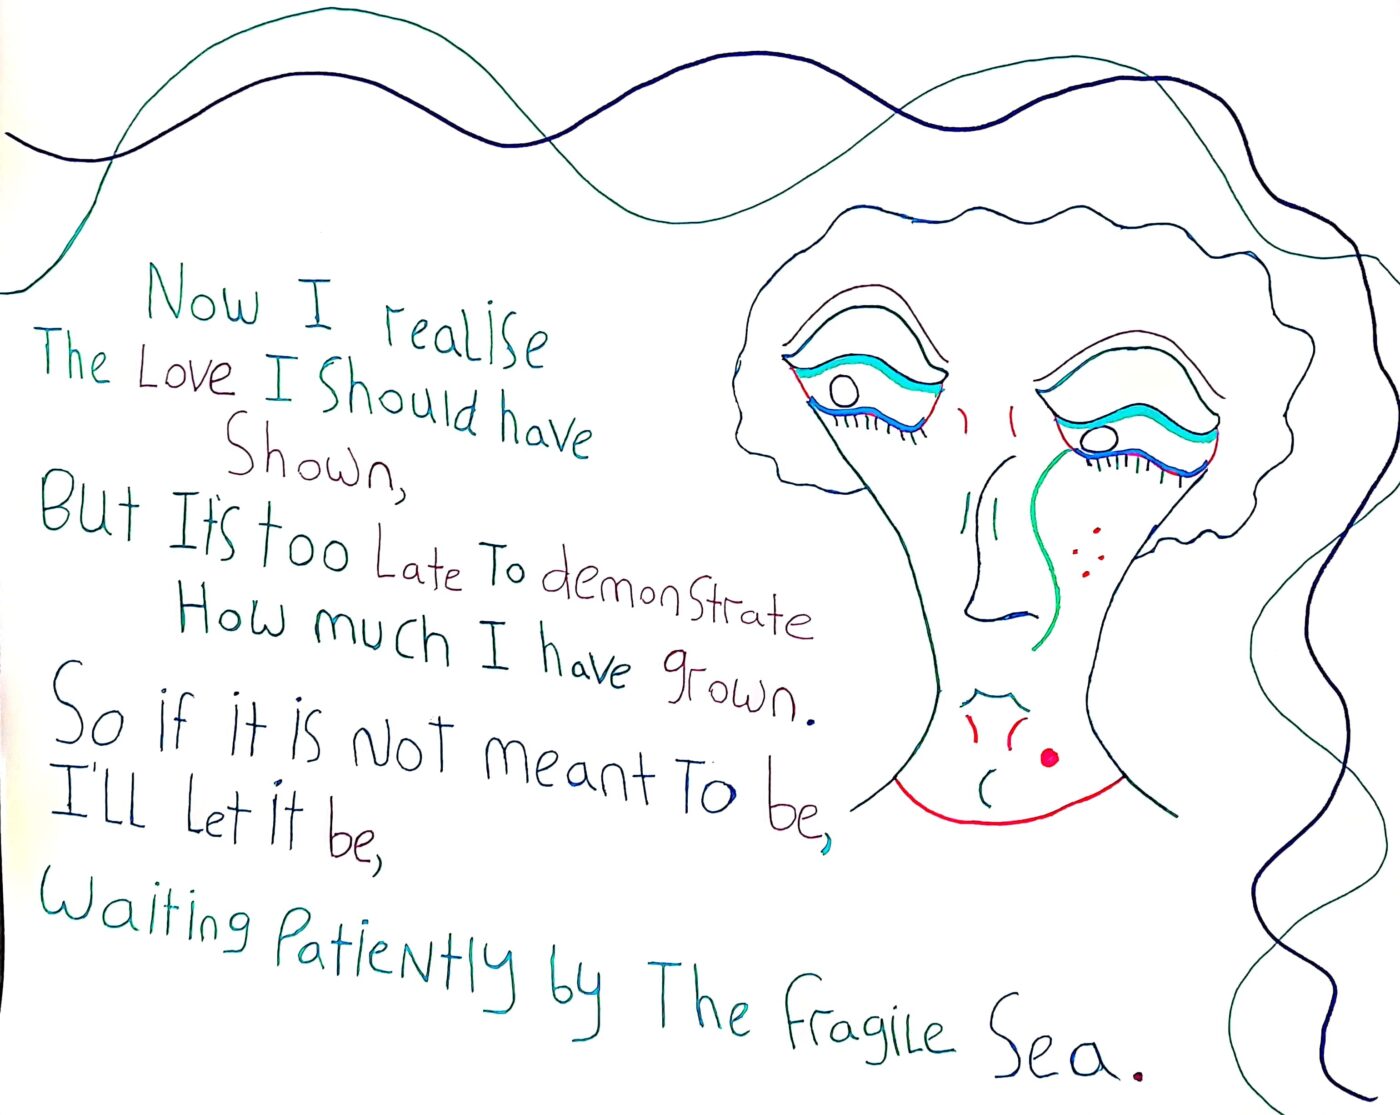 Now I realise
The Love I Should have
Shown,
But It's too Late To demonstrate
How much I have grown.
So if it is Not meant To be,
I'll Let it be,
Waiting Patiently by The fragile Sea.